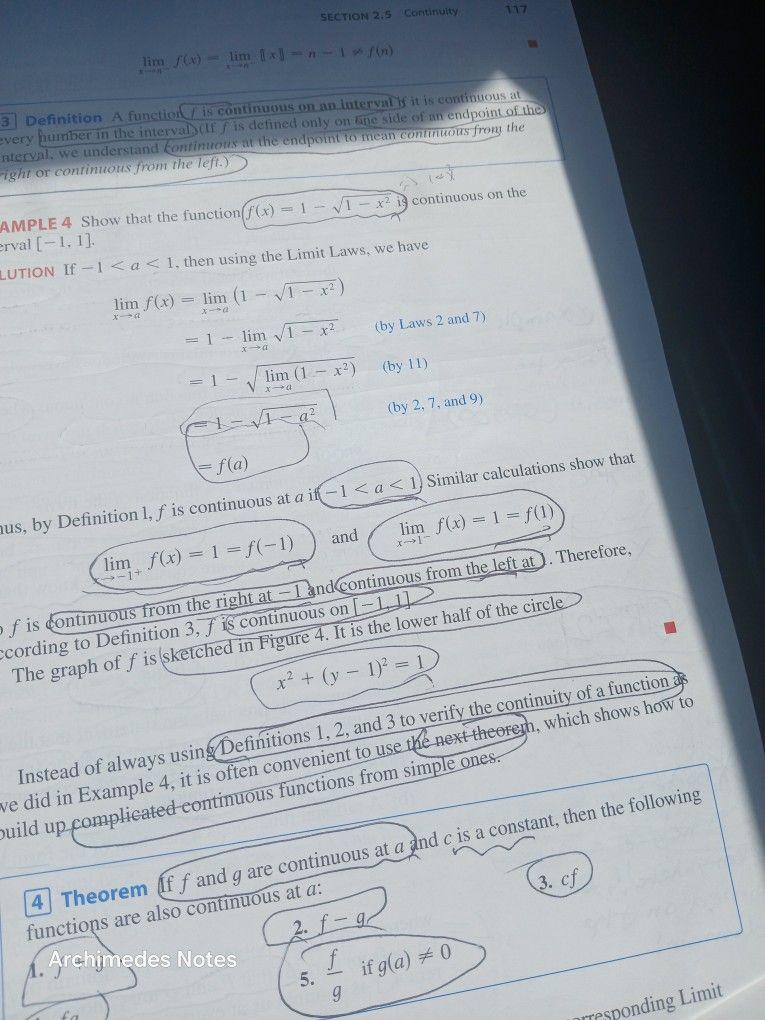 SECTION 2.5 Continuity 117
lim f(x) = lim ⟦x⟧ = n − 1 ≠ f(n)
x→n⁻ x→n⁻
3 Definition A function f is continuous on an interval if it is continuous at
every number in the interval. (If f is defined only on one side of an endpoint of the
nterval, we understand continuous at the endpoint to mean continuous from the
right or continuous from the left.)
AMPLE 4 Show that the function f(x) = 1 − √(1 − x²) is continuous on the
erval [−1, 1].
LUTION If −1 < a < 1, then using the Limit Laws, we have
lim f(x) = lim (1 − √(1 − x²))
x→a x→a
= 1 − lim √(1 − x²) (by Laws 2 and 7)
x→a
= 1 − √(lim (1 − x²)) (by 11)
x→a
= 1 − √(1 − a²) (by 2, 7, and 9)
= f(a)
hus, by Definition 1, f is continuous at a if −1 < a < 1. Similar calculations show that
lim f(x) = 1 = f(−1) and lim f(x) = 1 = f(1)
x→−1⁺ x→1⁻
o f is continuous from the right at −1 and continuous from the left at 1. Therefore,
ccording to Definition 3, f is continuous on [−1, 1].
The graph of f is sketched in Figure 4. It is the lower half of the circle
x² + (y − 1)² = 1
Instead of always using Definitions 1, 2, and 3 to verify the continuity of a function as
we did in Example 4, it is often convenient to use the next theorem, which shows how to
build up complicated continuous functions from simple ones.
4 Theorem If f and g are continuous at a and c is a constant, then the following
functions are also continuous at a:
1. 2. f − g 3. cf
Archimedes Notes
5. f/g if g(a) ≠ 0
rresponding Limit